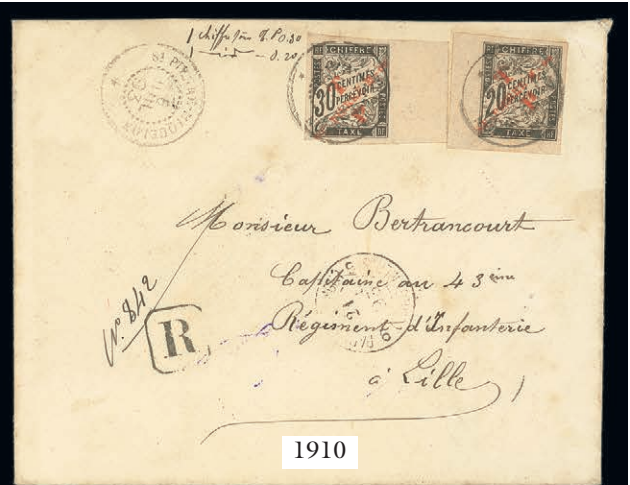 1 chiffre taxe T.P 0.30
1 — id — 0.20
ST PIERRE-MIQUELON
CHIFFRE
POSTES
30 CENTIMES
À PERCEVOIR
TAXE
RF
CHIFFRE
POSTES
20 CENTIMES
À PERCEVOIR
TAXE
RF
Monsieur Bertrancourt
Capitaine au 43ème
Régiment d'Infanterie
à Lille
N° 842
R
1910